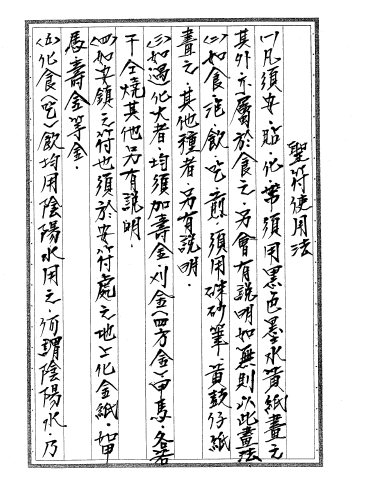 聖符使用法
(一)凡須安.貼.化.帶須用黑色墨水黃紙畫之
其外亦屬於食之.另會有說明如無則以此畫法
(二)如食泡飲.吃.煎.須用硃砂筆.黃鼓仔紙
畫之.其他種者.另有說明.
(三)如遇化大者.均須加壽金刈金(四方金)甲馬.各若
干仝燒其他另有說明
(四)如安鎮之符也須於安符處之地上化金紙.如甲
馬壽金等金.
(五)化食(吃)飲均用陰陽水用之.何謂陰陽水.乃